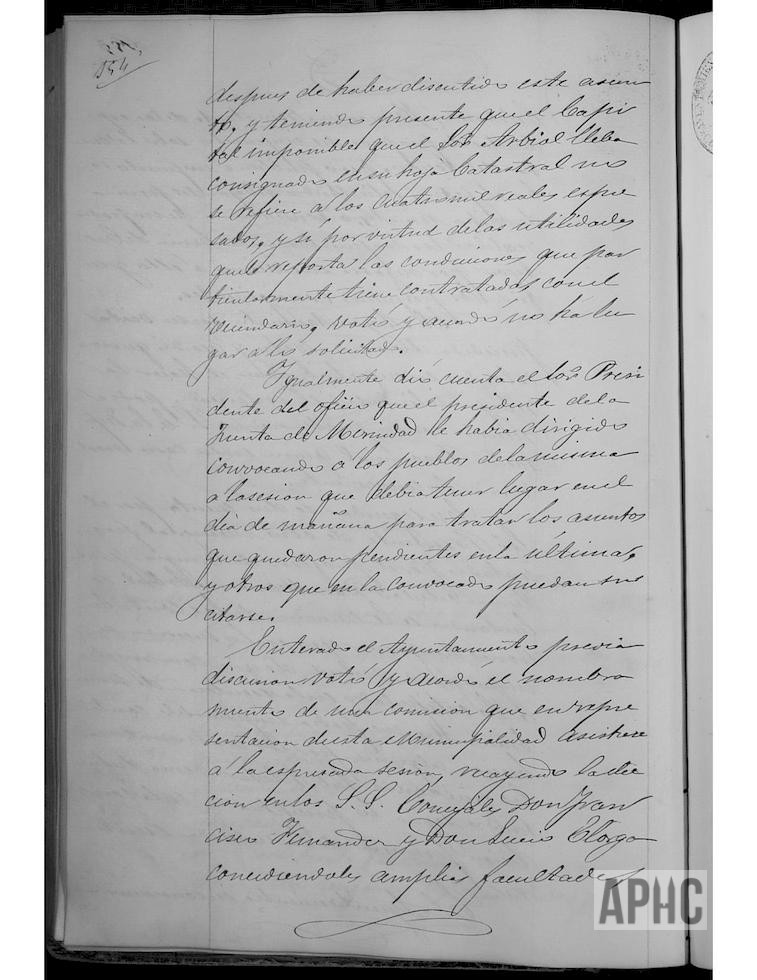 154
despues de haber discutido este asun
to, y teniendo presente que el Capi
tal imponible que el Sor. Arbial lleba
consignado en su hoja Catastral no
se refiere á los cuatro mil reales espre
sados, y sí por virtud de las utilidades
que le reporta las condiciones que par
ticularmente tiene contratadas con el
vecindario, votó y acordó no há lu
gar á lo solicitado.
Igualmente dió cuenta el Sor. Presi
dente del oficio que el presidente de la
Junta de Merindad le habia dirigido
convocando á los pueblos de la misma
a la sesion que debia tener lugar en el
dia de mañana para tratar los asuntos
que quedaron pendientes en la última,
y otros que en la convocada puedan sus
citarse.
Enterado el Ayuntamiento previa
discusion votó y acordó el nombra
miento de una comision que en repre
sentacion de esta Municipalidad asistiese
á la espresada sesion, recayendo la elec
cion en los S. S. Concejales Don Fran
cisco Fernandez y Don Lucio Elorga
concediendoles amplias facultades
APHC